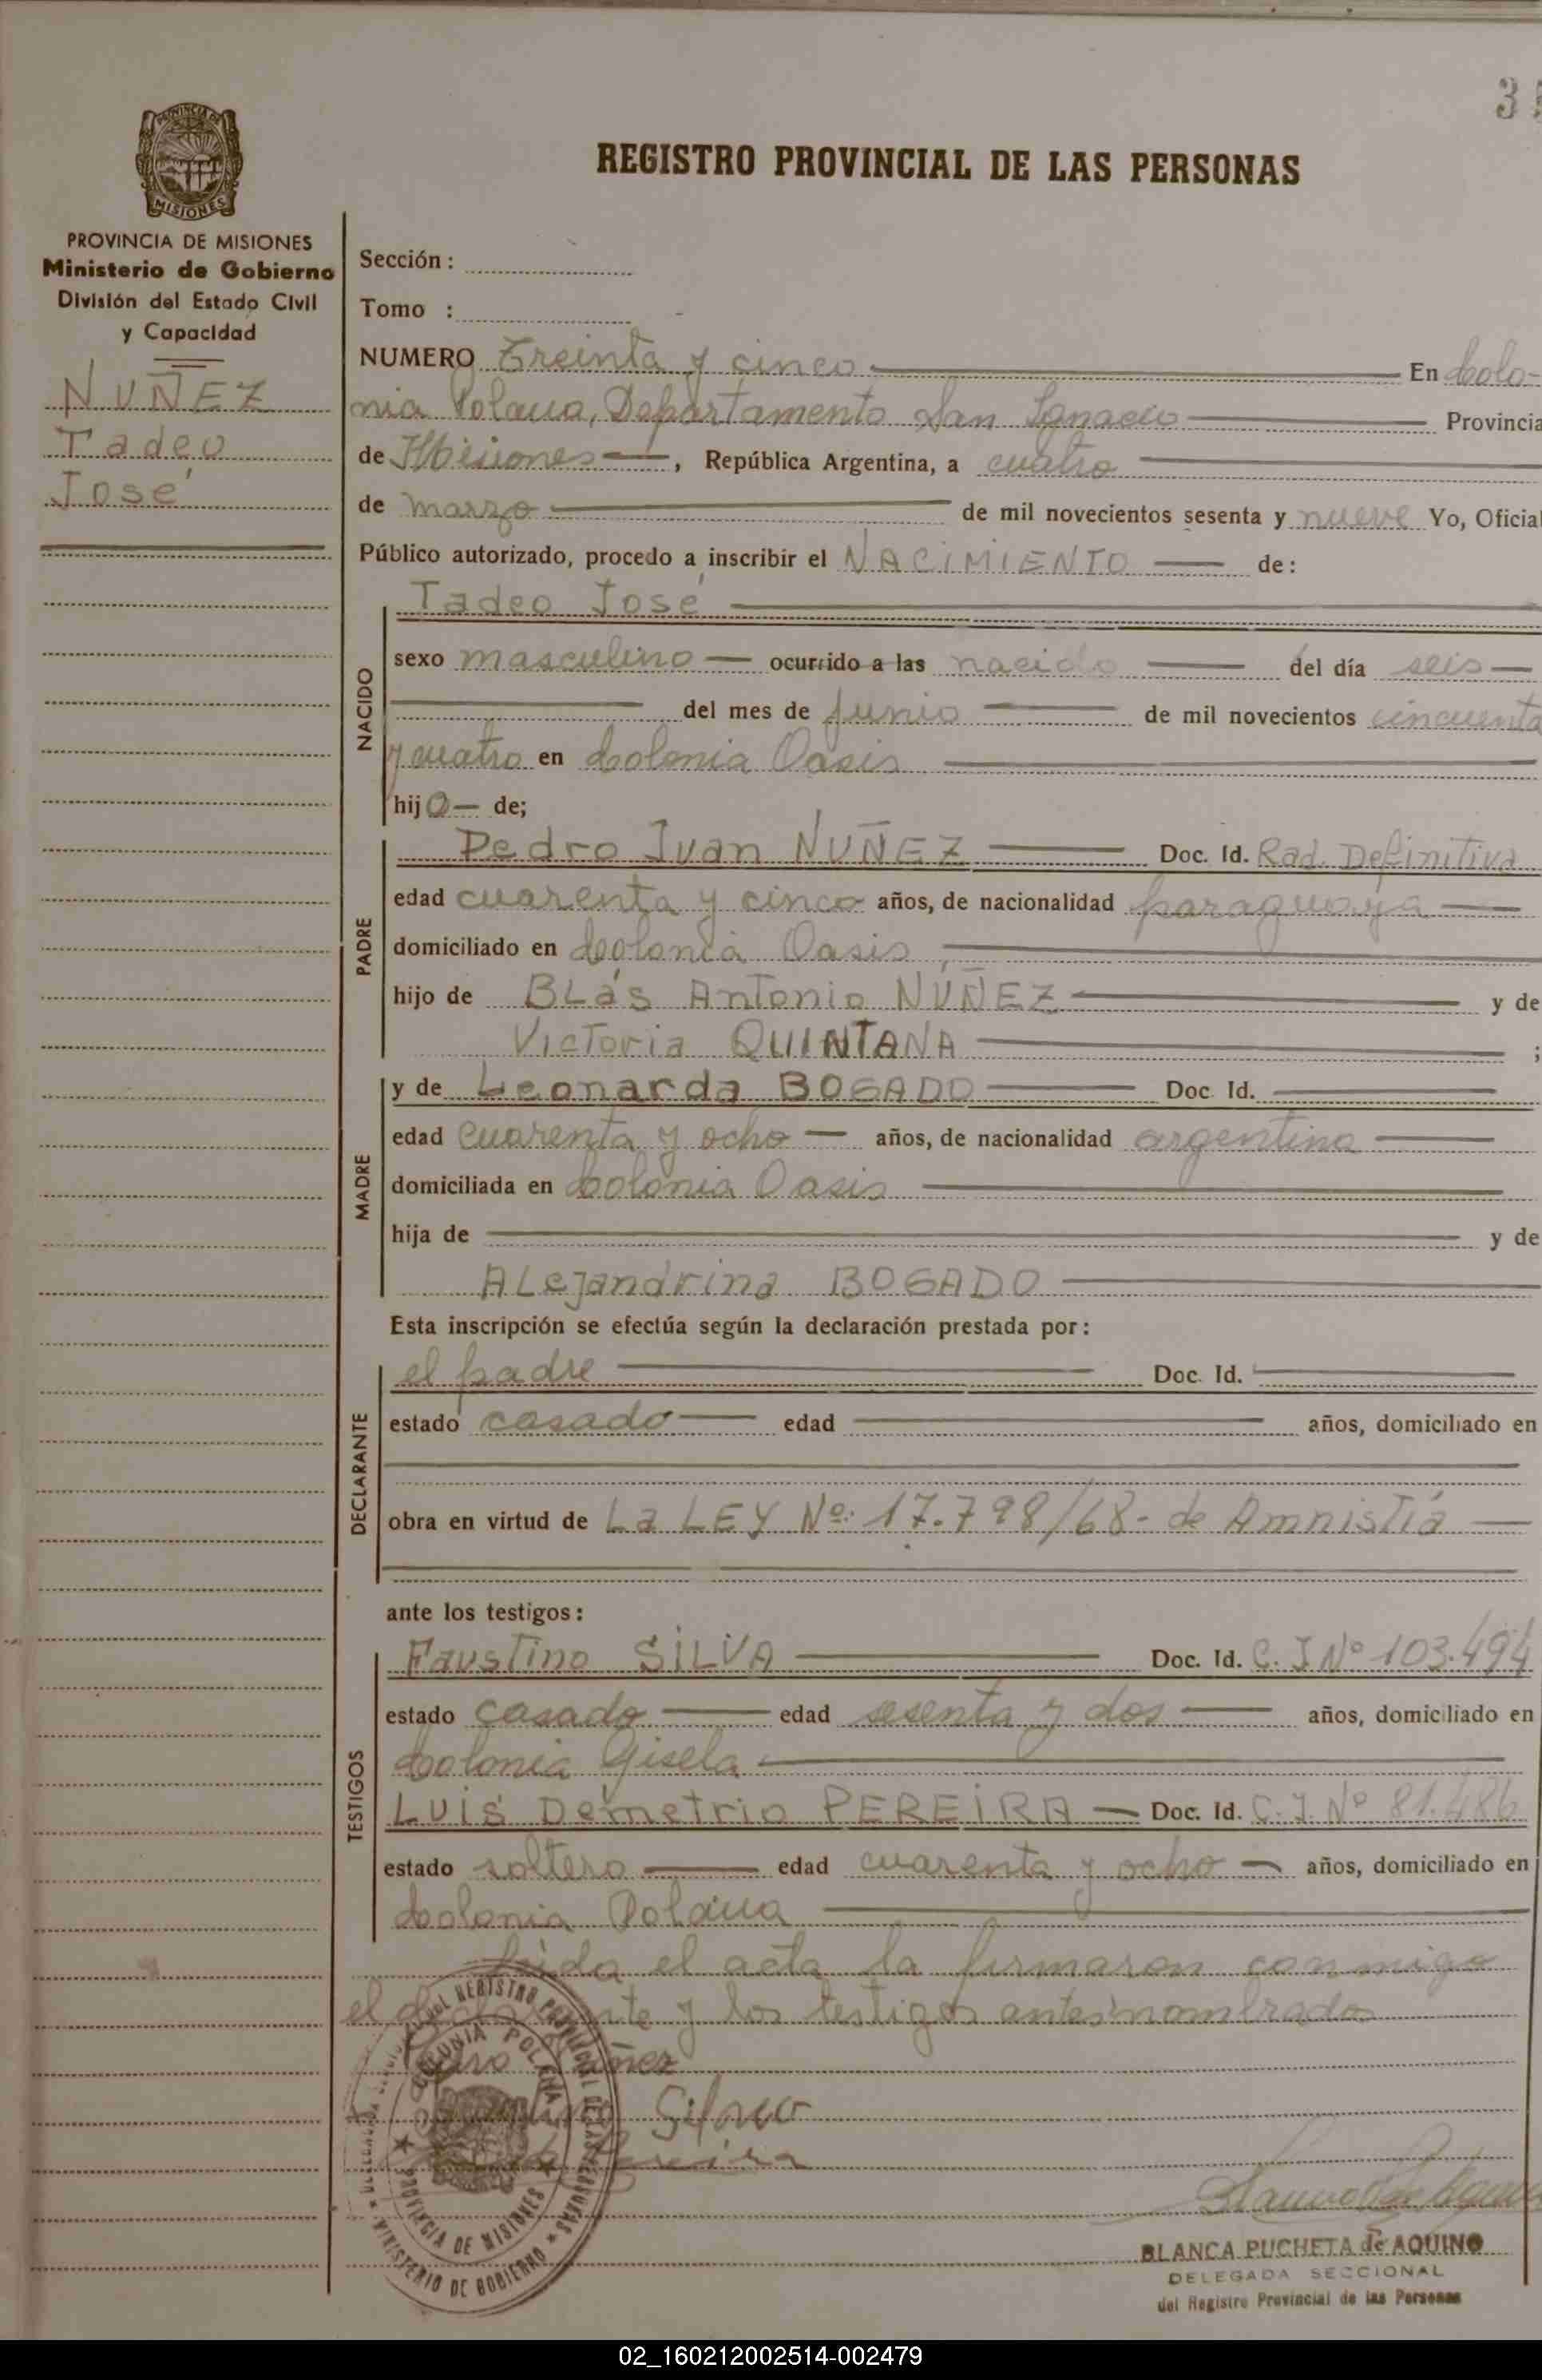 3
PROVINCIA DE
MISIONES
REGISTRO PROVINCIAL DE LAS PERSONAS
PROVINCIA DE MISIONES
Ministerio de Gobierno
División del Estado Civil
y Capacidad
NUÑEZ
Tadeo
José
Sección :
Tomo :
NUMERO Treinta y cinco En Colo-
nia Polana, Departamento San Ignacio Provincia
de Misiones, República Argentina, a cuatro
de marzo de mil novecientos sesenta y nueve Yo, Oficial
Público autorizado, procedo a inscribir el NACIMIENTO de:
NACIDO
Tadeo José
sexo masculino ocurrido a las nacido del día seis
del mes de junio de mil novecientos cincuenta
y cuatro en Colonia Oasis
hijo de;
PADRE
Pedro Juan NUÑEZ Doc. Id. Rad. Definitiva
edad cuarenta y cinco años, de nacionalidad paraguaya
domiciliado en Colonia Oasis
hijo de Blás Antonio NÚÑEZ y de
Victoria QUINTANA ;
MADRE
y de Leonarda BOGADO Doc. Id.
edad cuarenta y ocho años, de nacionalidad argentina
domiciliada en Colonia Oasis
hija de y de
Alejandrina BOGADO
Esta inscripción se efectúa según la declaración prestada por:
DECLARANTE
el padre Doc. Id.
estado casado edad años, domiciliado en
obra en virtud de La LEY Nº: 17.798/68- de Amnistía
ante los testigos:
TESTIGOS
Faustino SILVA Doc. Id. C. I Nº 103.494
estado casado edad sesenta y dos años, domiciliado en
Colonia Gisela
LUIS Demetrio PEREIRA Doc. Id. C. I. Nº 81.486
estado soltero edad cuarenta y ocho años, domiciliado en
Colonia Polana
Leida el acta la firmaron conmigo
el declarante y los testigos antes nombrados
Pedro Núñez
Faustino Silva
Pereira
REGISTRO PROVINCIAL DE LAS PERSONAS
COLONIA POLANA
PROVINCIA DE MISIONES
MINISTERIO DE GOBIERNO
BLANCA PUCHETA de AQUINO
DELEGADA SECCIONAL
del Registro Provincial de las Personas
02_160212002514-002479